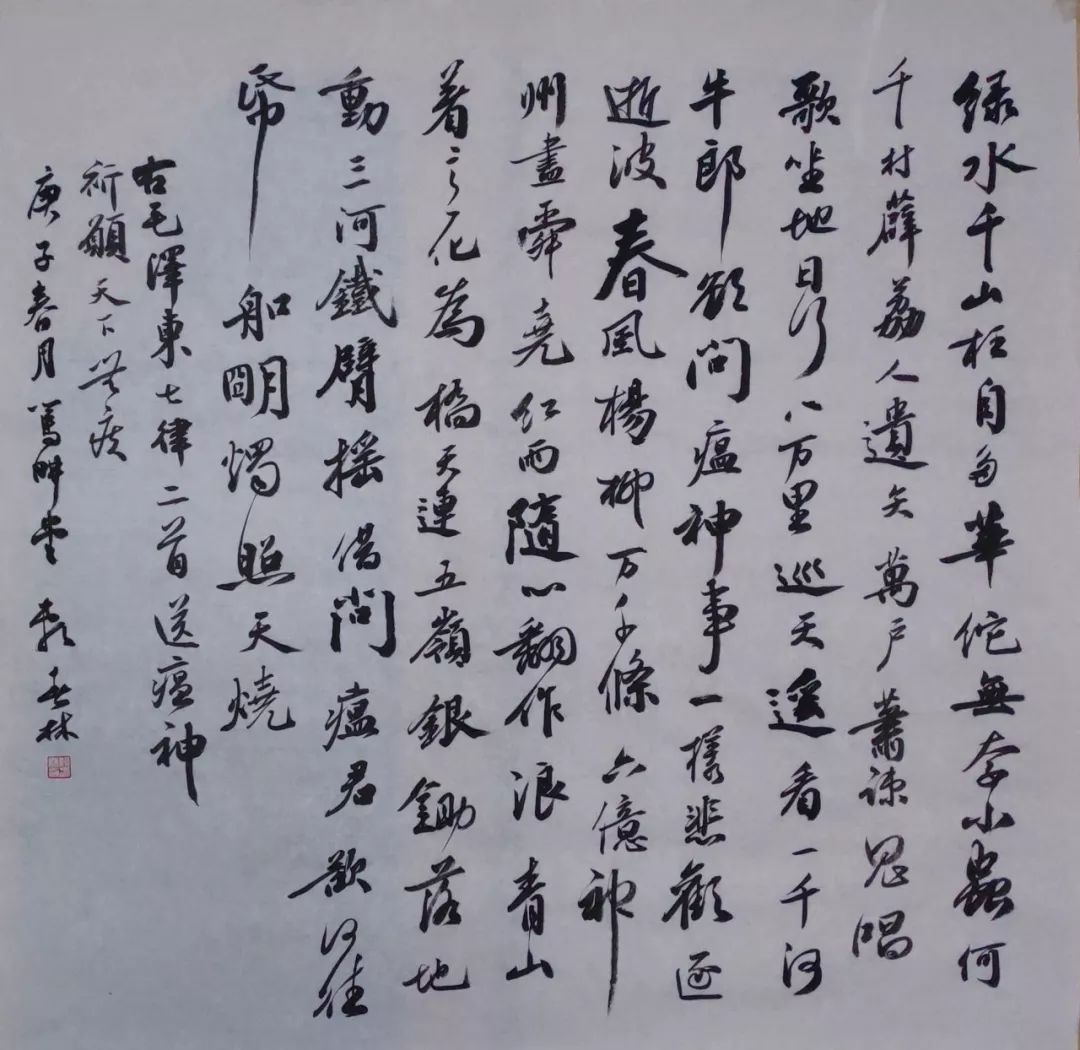 绿水千山枉自多華佗無奈小蟲何
千村薜荔人遺矢萬户蕭疎鬼唱
歌坐地日行八万里巡天遥看一千河
牛郎欲問瘟神事一樣悲歡逐
逝波春風楊柳万千條六億神
州盡舜堯红雨隨心翻作浪青山
着意化為橋天連五嶺銀鋤落地
動三河鐵臂摇借問瘟君欲何往
帋船朙燭照天燒
右毛澤東七律二首送瘟神
祈願天下無疾
庚子春月 畊堂 林